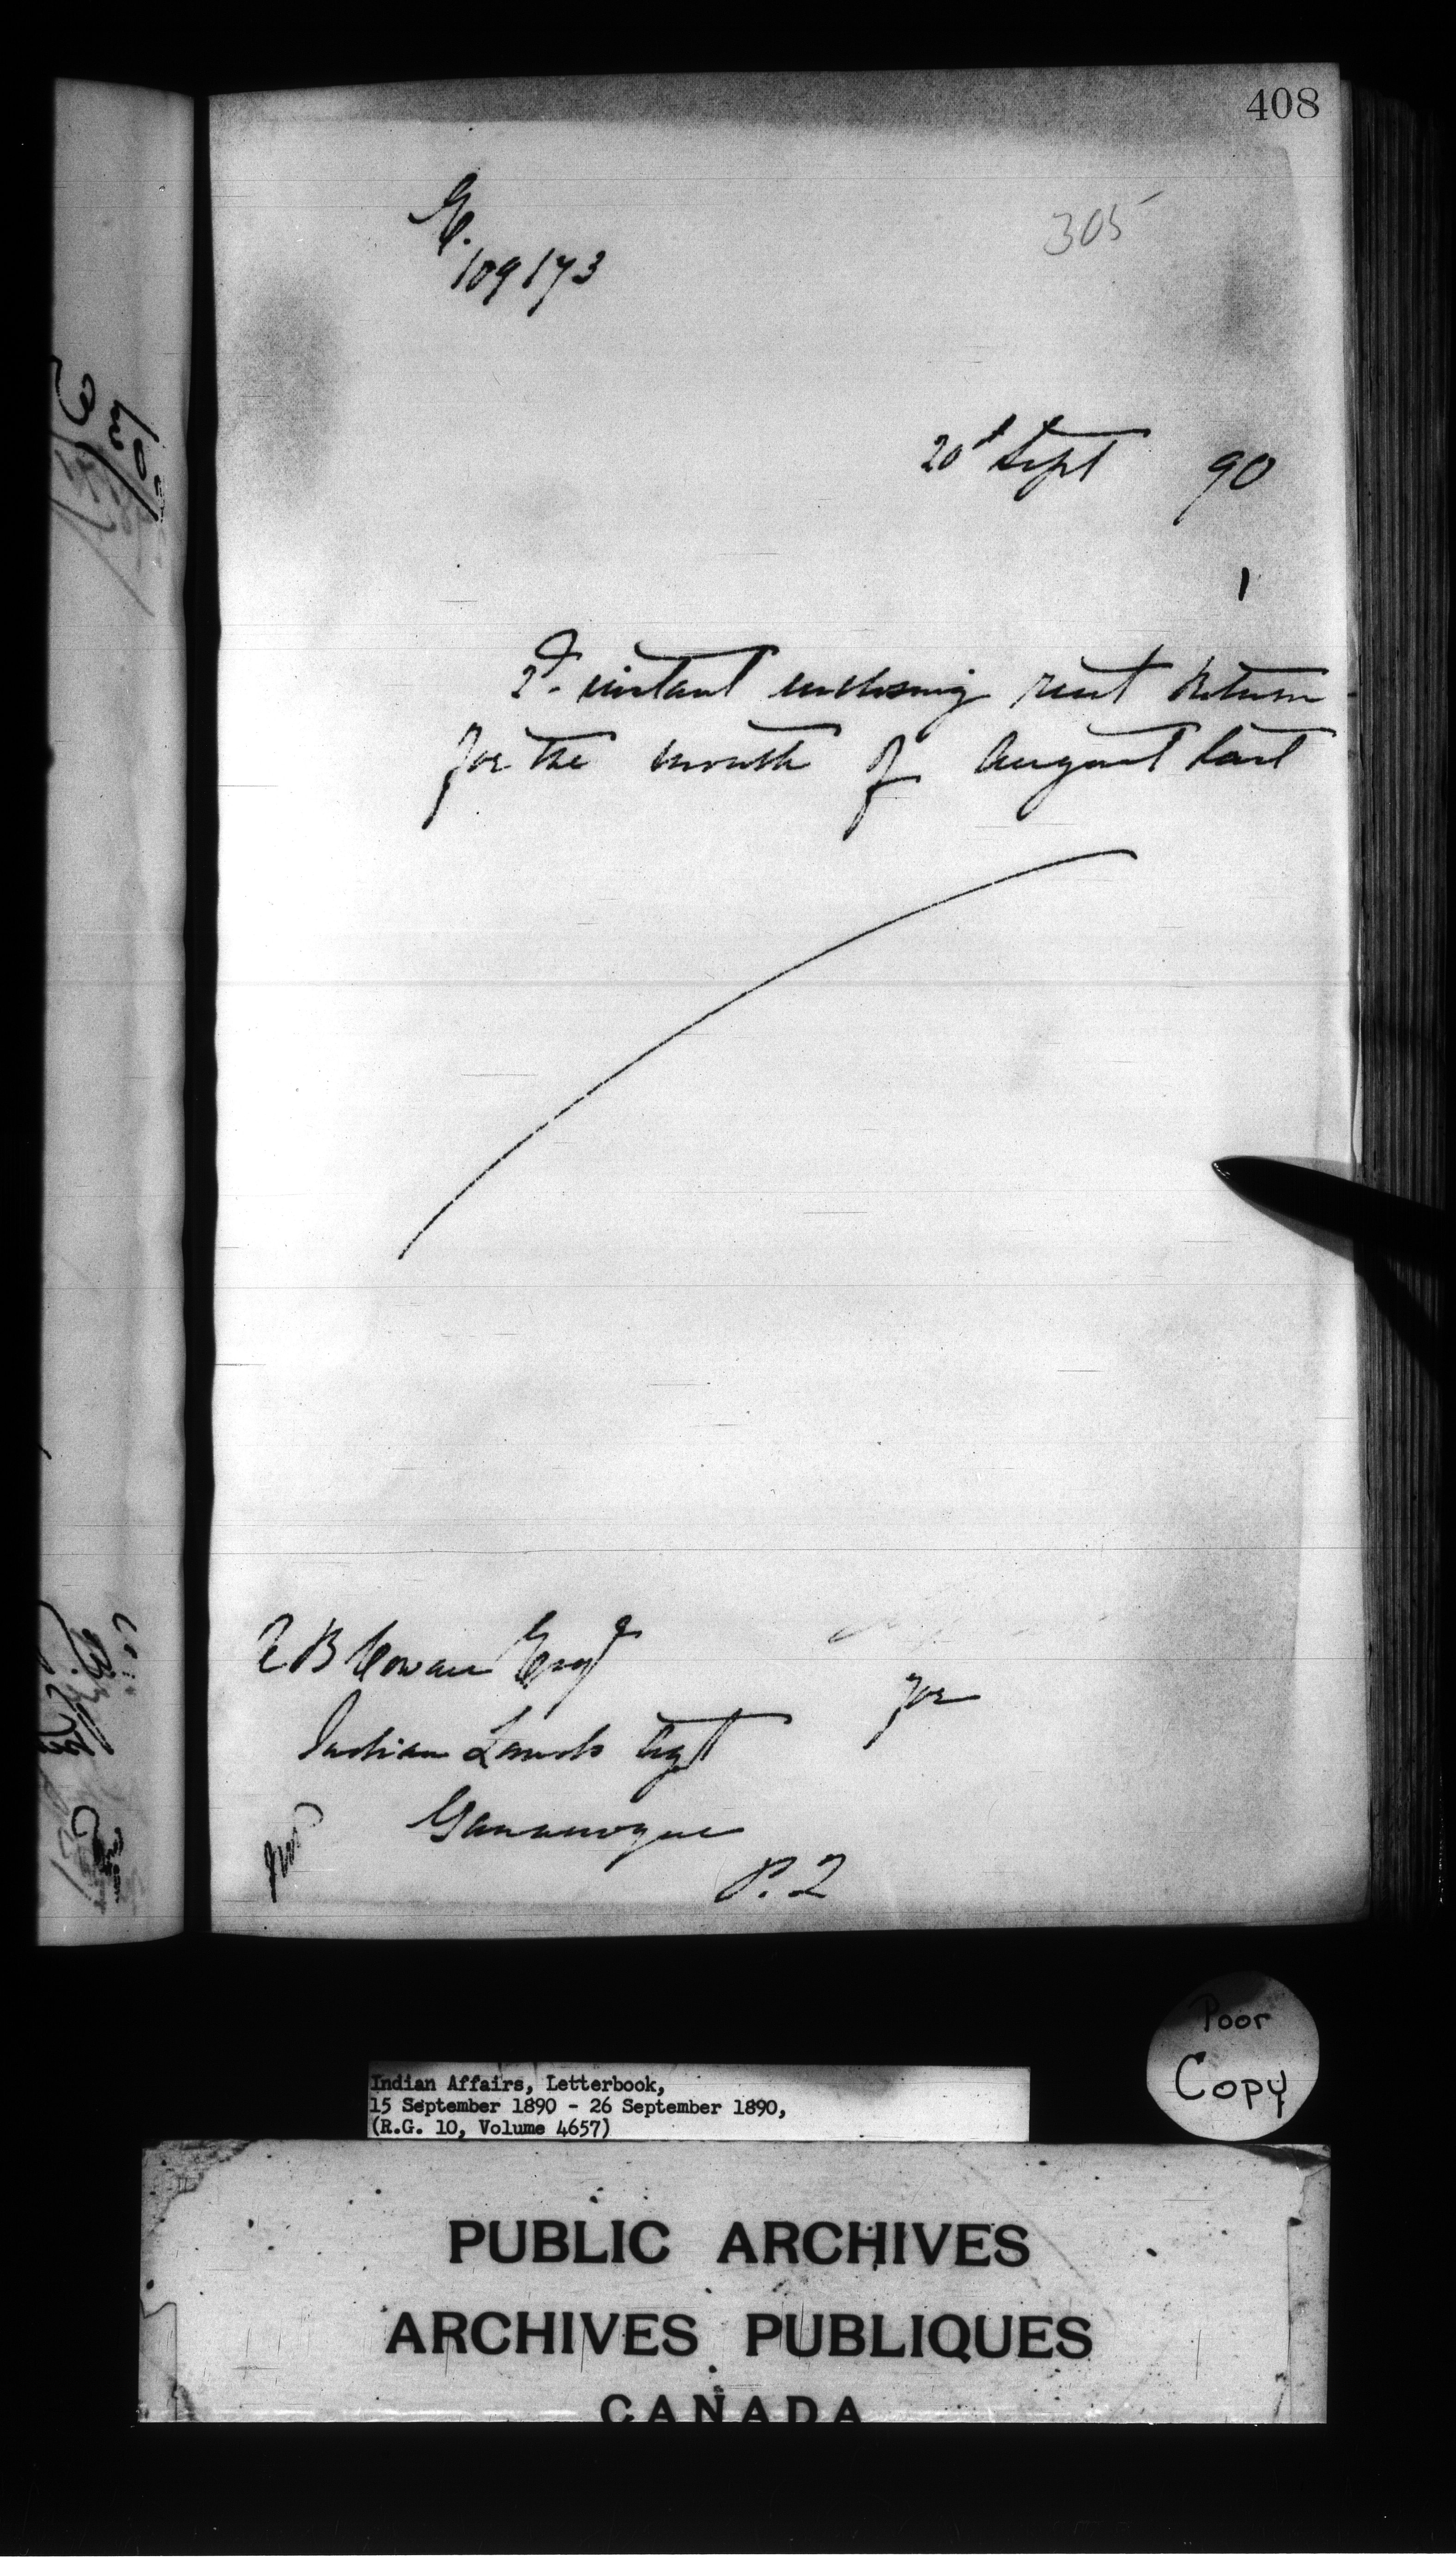 408
305
E.
109173
20th Sept 90
1
2d. instant enclosing rent Return
for the month of August last
E B Cowan Esqr
Indian Lands Agt
for
Gananoque
P. 2
Poor
Copy
Indian Affairs, Letterbook,
15 September 1890 - 26 September 1890,
(R.G. 10, Volume 4657)
PUBLIC ARCHIVES
ARCHIVES PUBLIQUES
CANADA